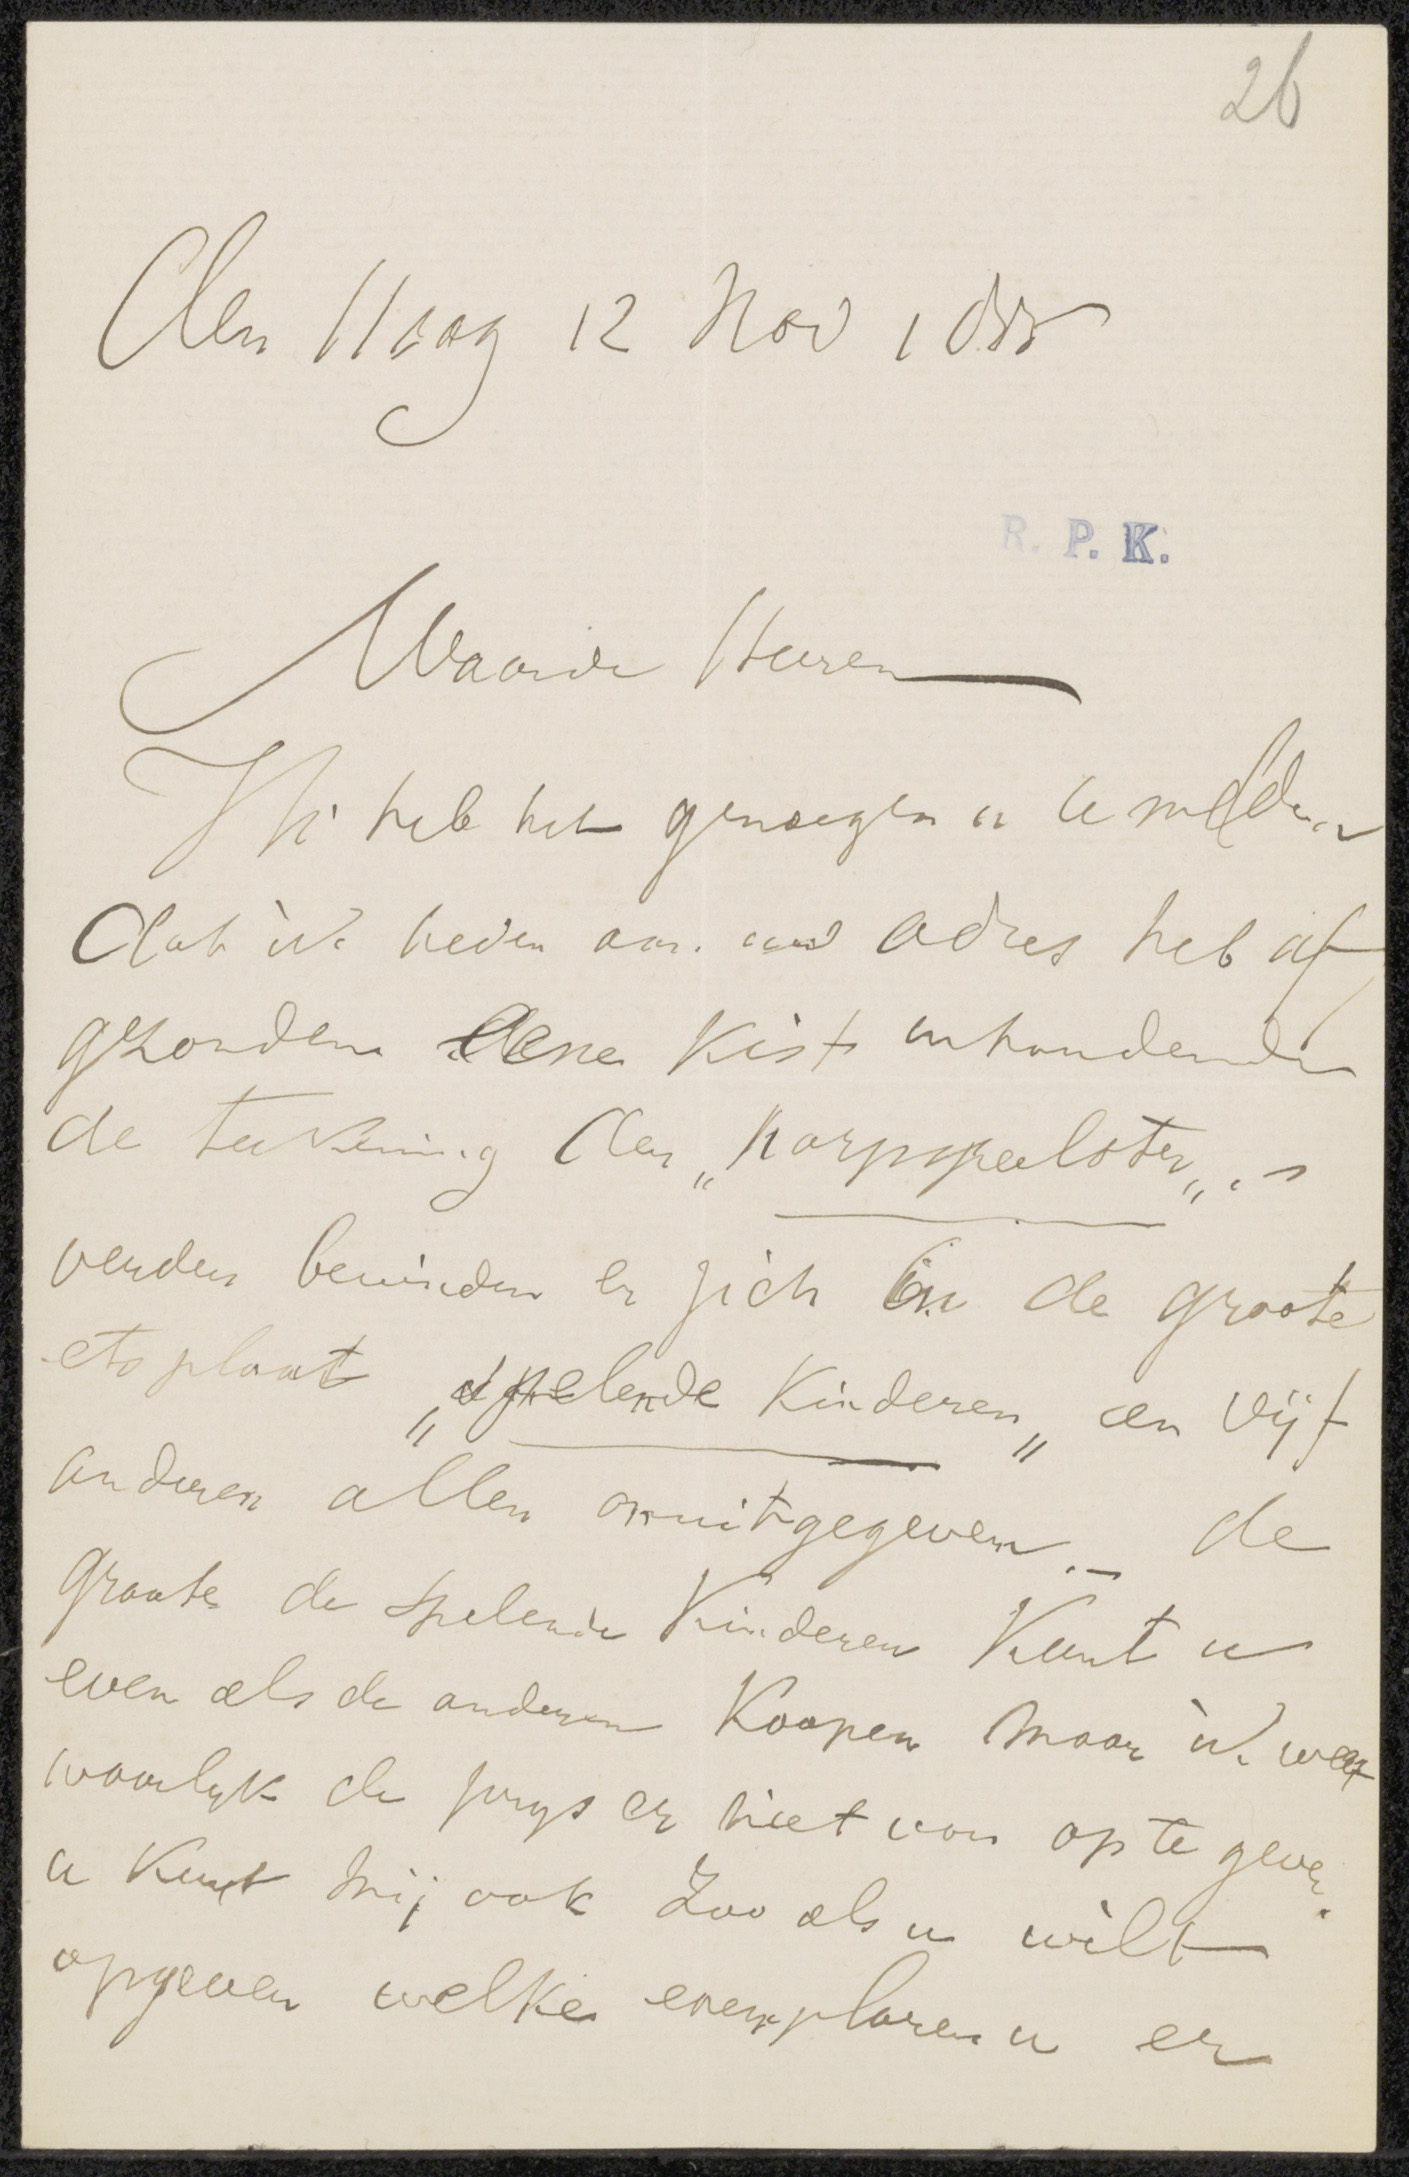 26
den Haag 12 Nov 188
R. P. K.
Waarde Heeren
Ik heb het genoegen u te melden
dat ik heden aan uw adres heb af
gezonden eene kist inhoudende
de teekening den „harpspeelster„ .
verder bevinden er zich in de groote
etsplaat „spelende kinderen„ en vijf
anderen allen onuitgegeven. – de
groote de spelende kinderen kunt u
even als de anderen koopen maar ik weet
waarlijk de prijs er niet van op te geven.
u kunt mij ook zoo als u wilt
opgeven welke exemplaren u er